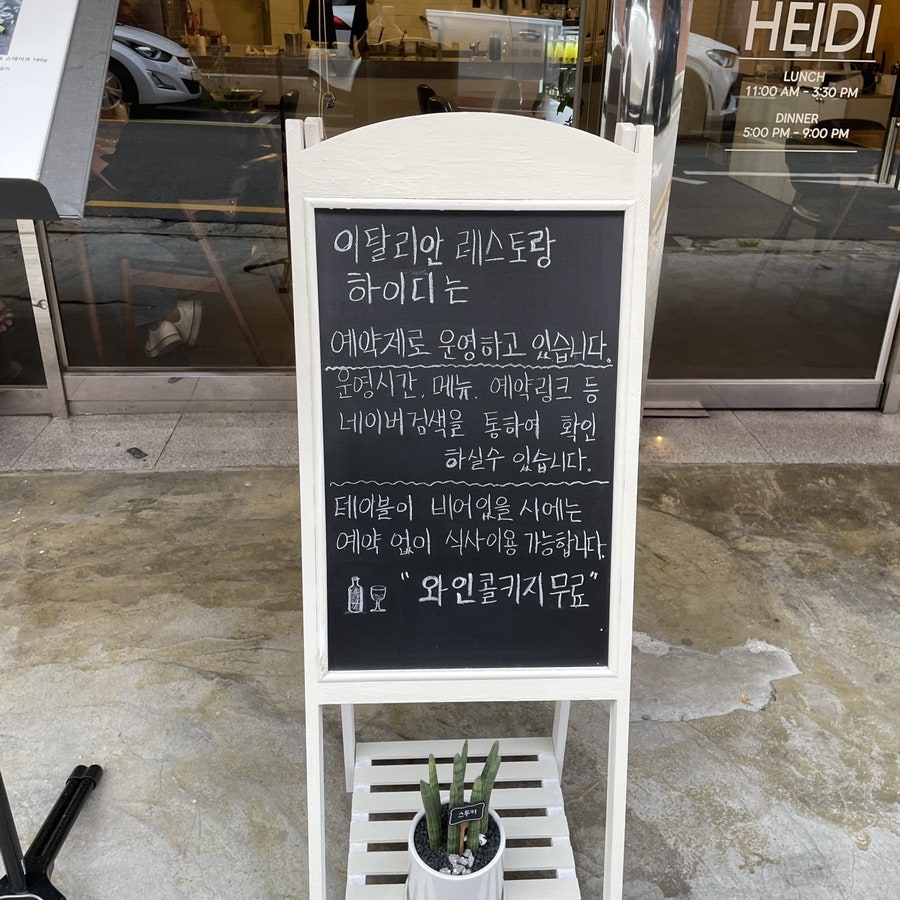 스테이크 180g
HEIDI
LUNCH
11:00 AM - 3:30 PM
DINNER
5:00 PM - 9:00 PM
이탈리안 레스토랑
하이디는
예약제로 운영하고 있습니다.
운영시간, 메뉴, 예약링크 등
네이버검색을 통하여 확인
하실수 있습니다.
테이블이 비어있을 시에는
예약 없이 식사이용 가능합니다.
"와인콜키지무료"
스투키